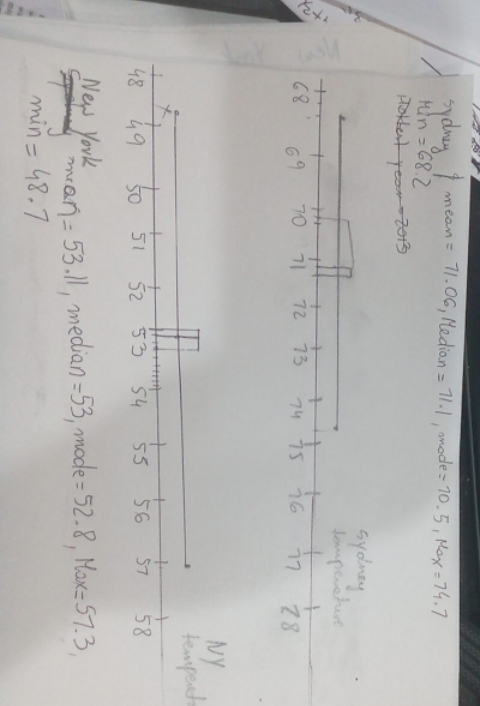 Sydney mean = 71.06, Median = 71.1, mode = 70.5, Max = 74.7
Min = 68.2
Hottest year = 2013
68 69 70 71 72 73 74 75 76 77 78
Sydney
temperature
48 49 50 51 52 53 54 55 56 57 58
NY
temperat
New York mean = 53.11, median = 53, mode = 52.8, Max = 57.3,
min = 48.7